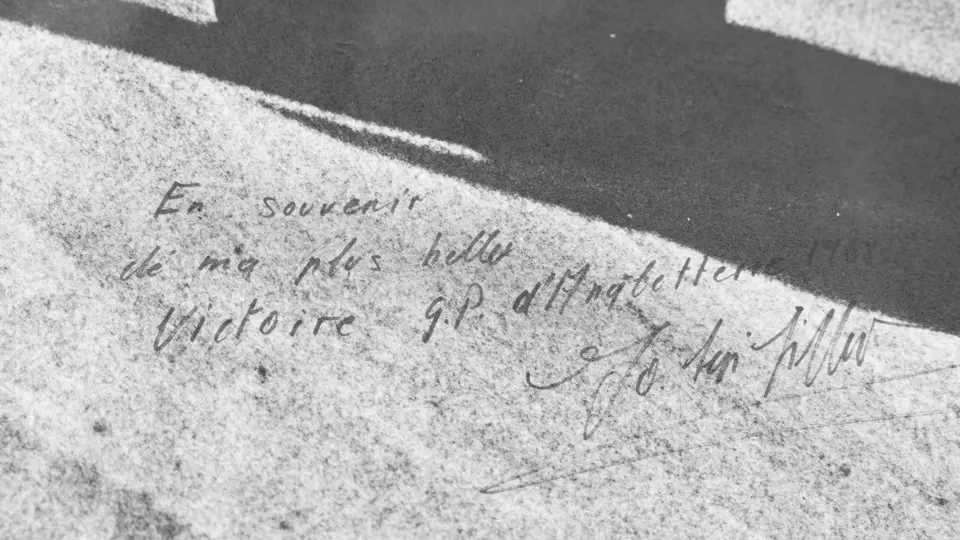 En souvenir
de ma plus belle
Victoire G.P. d'Angletterre 1968
Jo "Seppi" Siffert